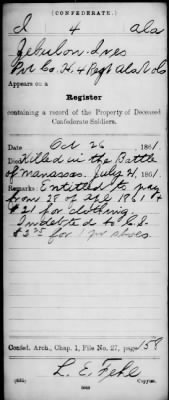 (CONFEDERATE.)
I 4 Ala
Zebulon Ives
Pvt Co. H. 4 Regt Ala Vols
Appears on a
Register
containing a record of the Property of Deceased
Confederate Soldiers.
Date Oct 26, 1861.
Died Killed in the Battle
of Manassas. July 21, 1861.
Remarks: Entitled to pay
from 28 of Apl 1861 &
$21 for clothing
Indebted to C.S.
for 1 pr shoes
Confed. Arch., Chap. 1, File No. 27, page 158
L. E.
Copyist.